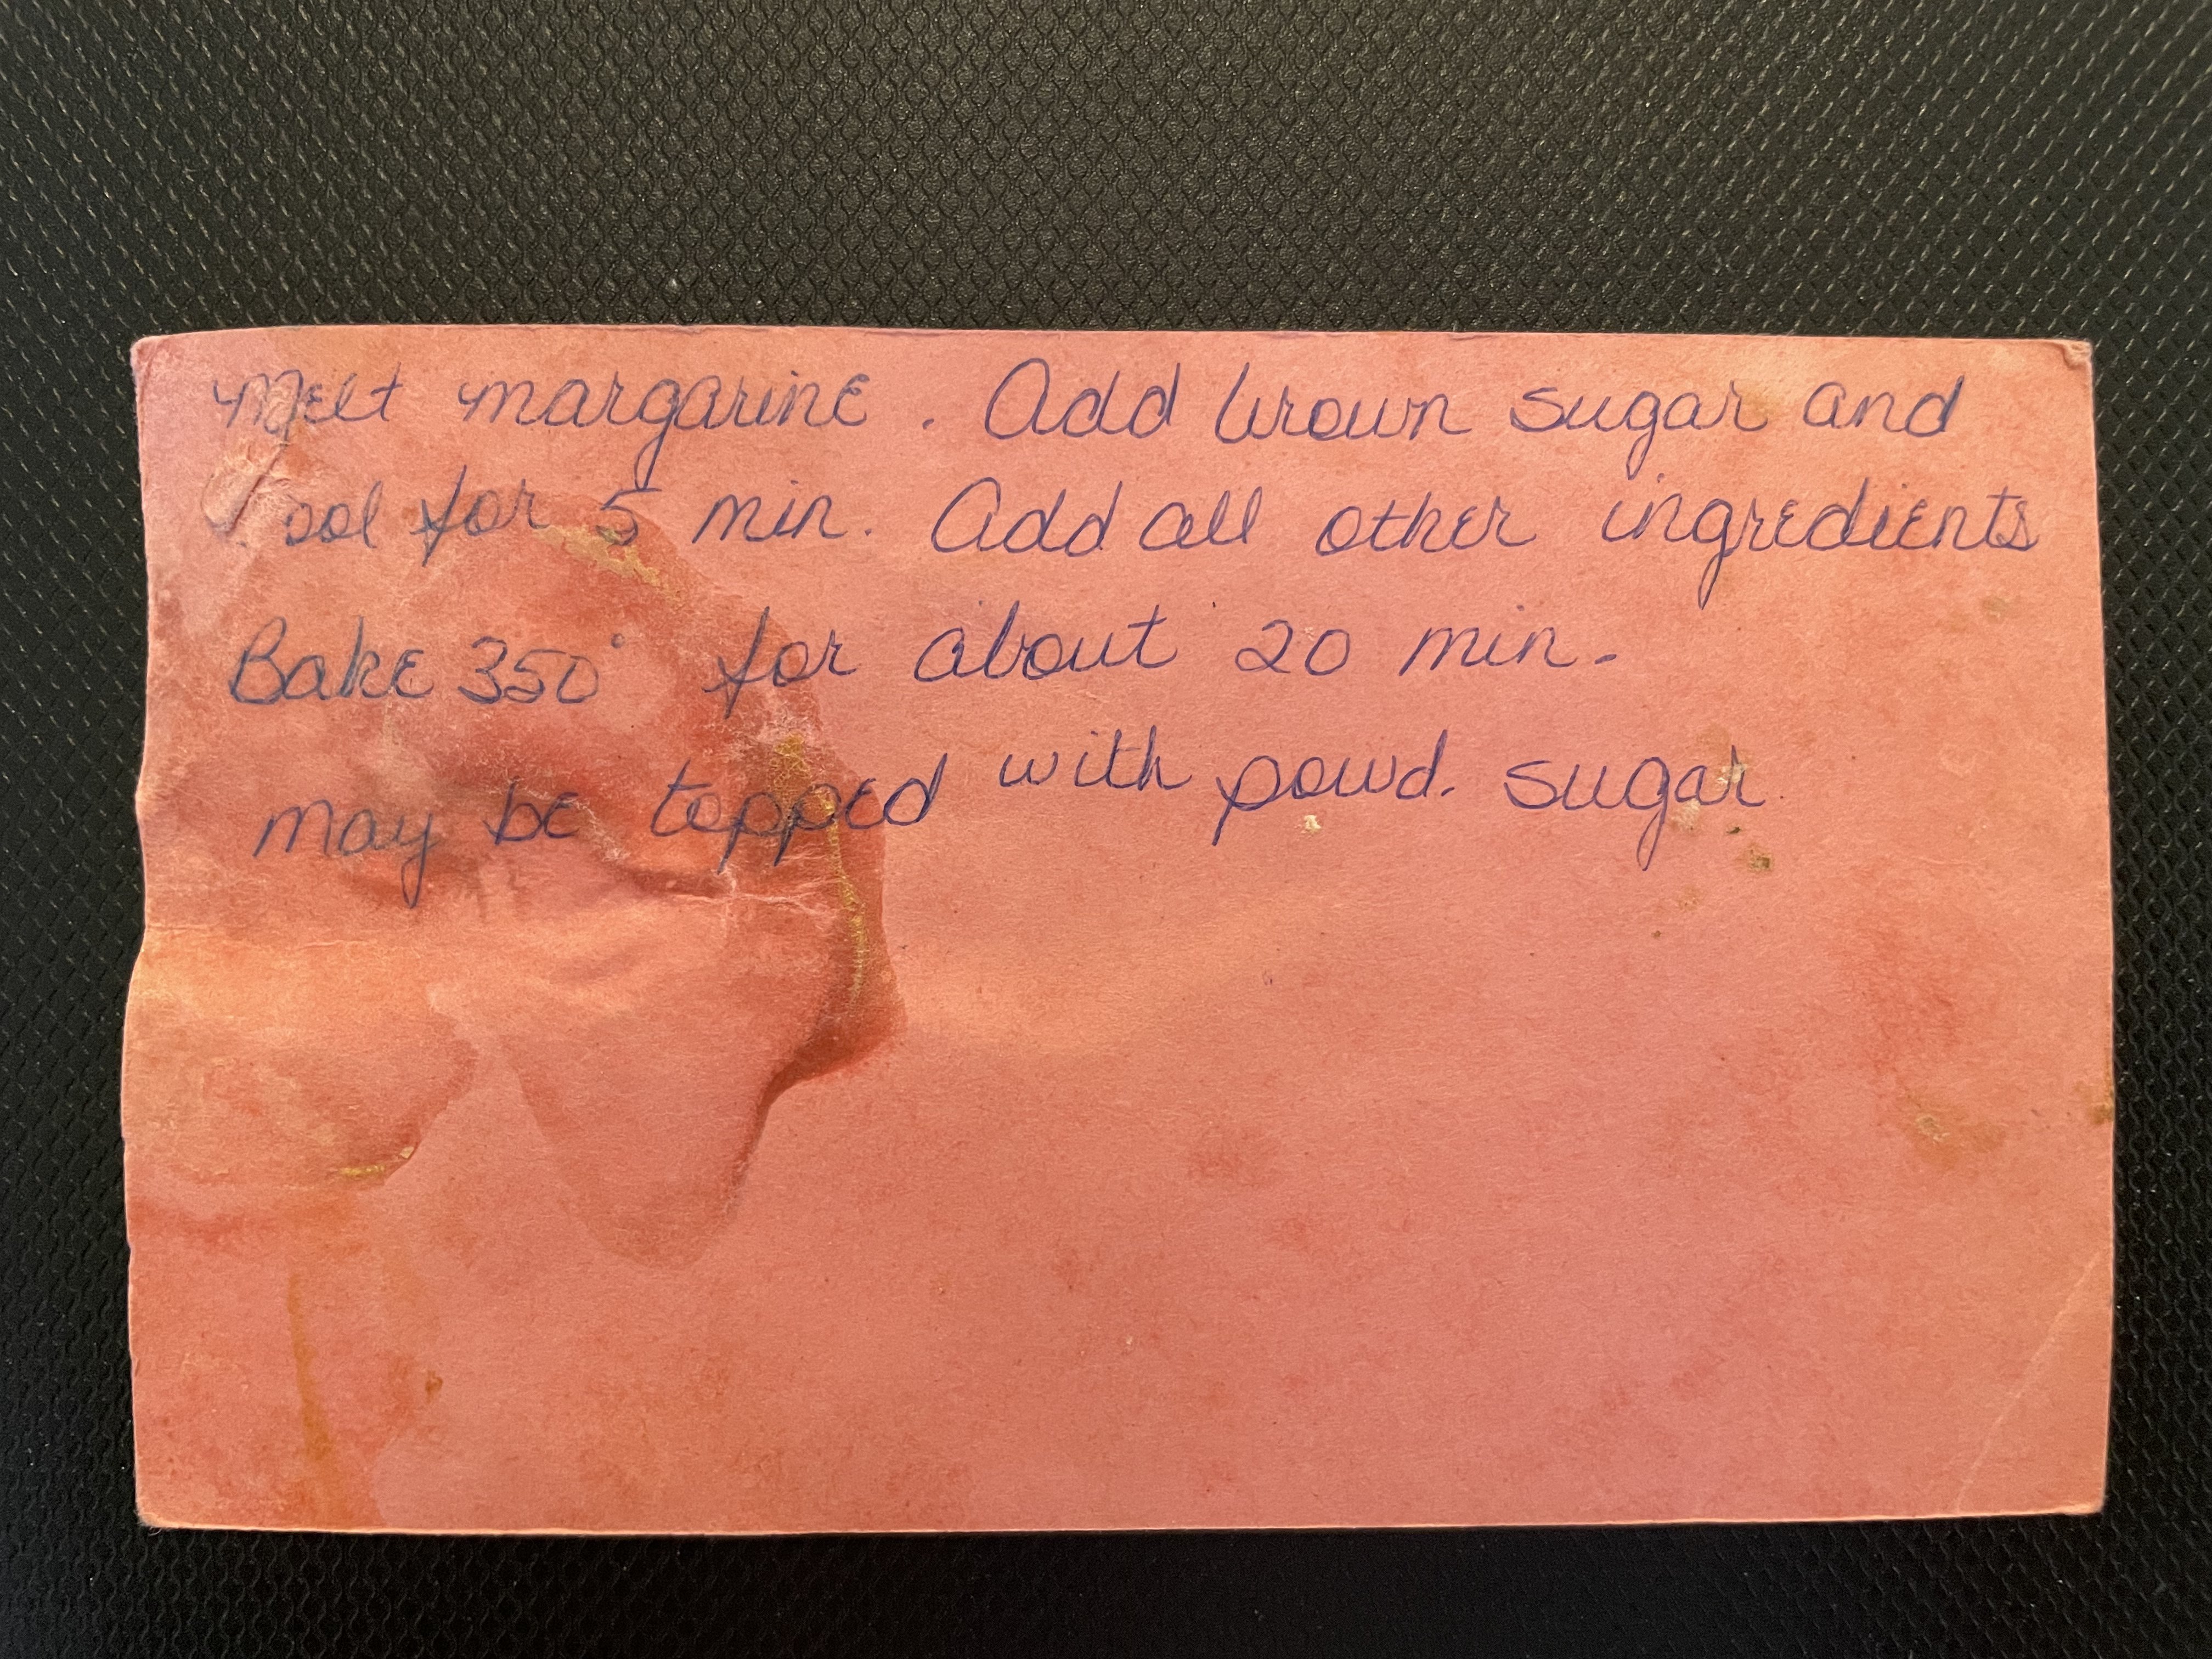 Melt margarine. Add brown sugar and
Cool for 5 min. Add all other ingredients
Bake 350° for about 20 min.
may be topped with powd. sugar